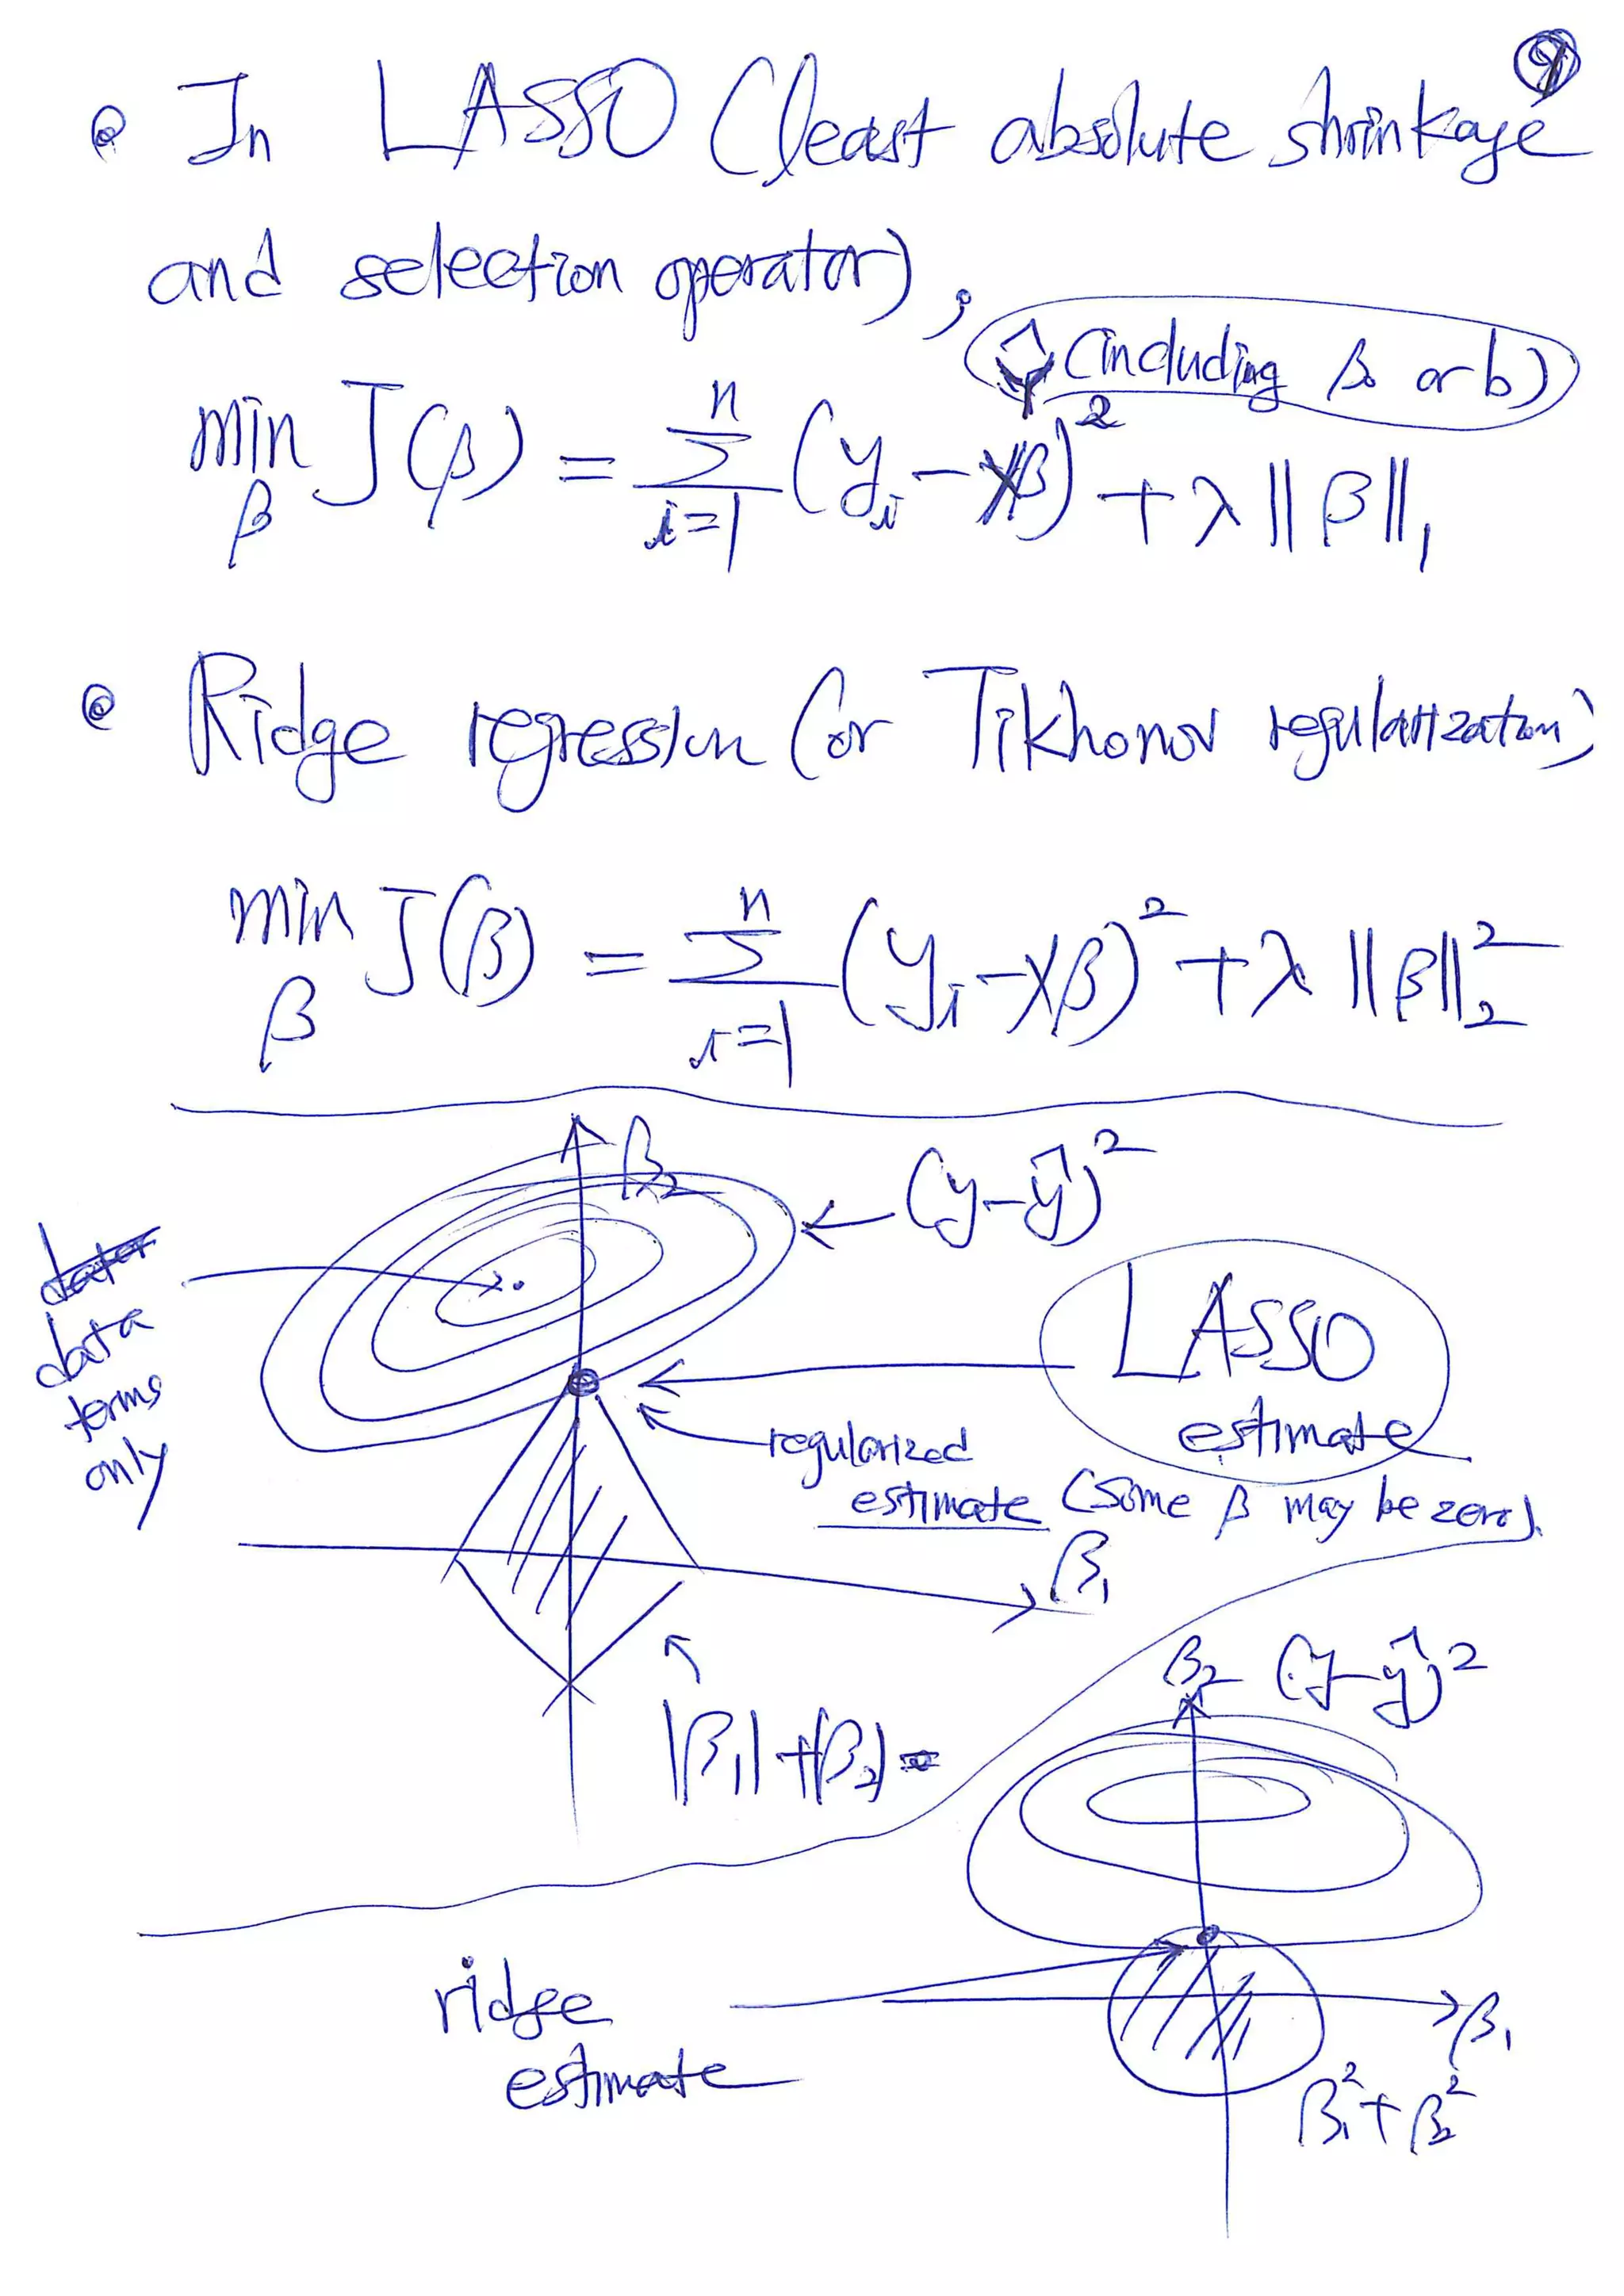 ⑨
• In LASSO (least absolute shrinkage
and selection operator),
ŷ (including β₀ or b)
min J(β) = Σ (yᵢ - Xβ)² + λ ||β||₁
β
n
i=1
• Ridge regression (or Tikhonov regularization)
min J(β) = Σ (yᵢ - Xβ)² + λ ||β||₂²
β
n
i=1
β₂
(y - ŷ)²
data
terms
only
LASSO
estimate
regularized
estimate (some β may be zero).
β₁
|β₁| + |β₂| =
β₂ (y - ŷ)²
ridge
estimate
β₁
β₁² + β₂²